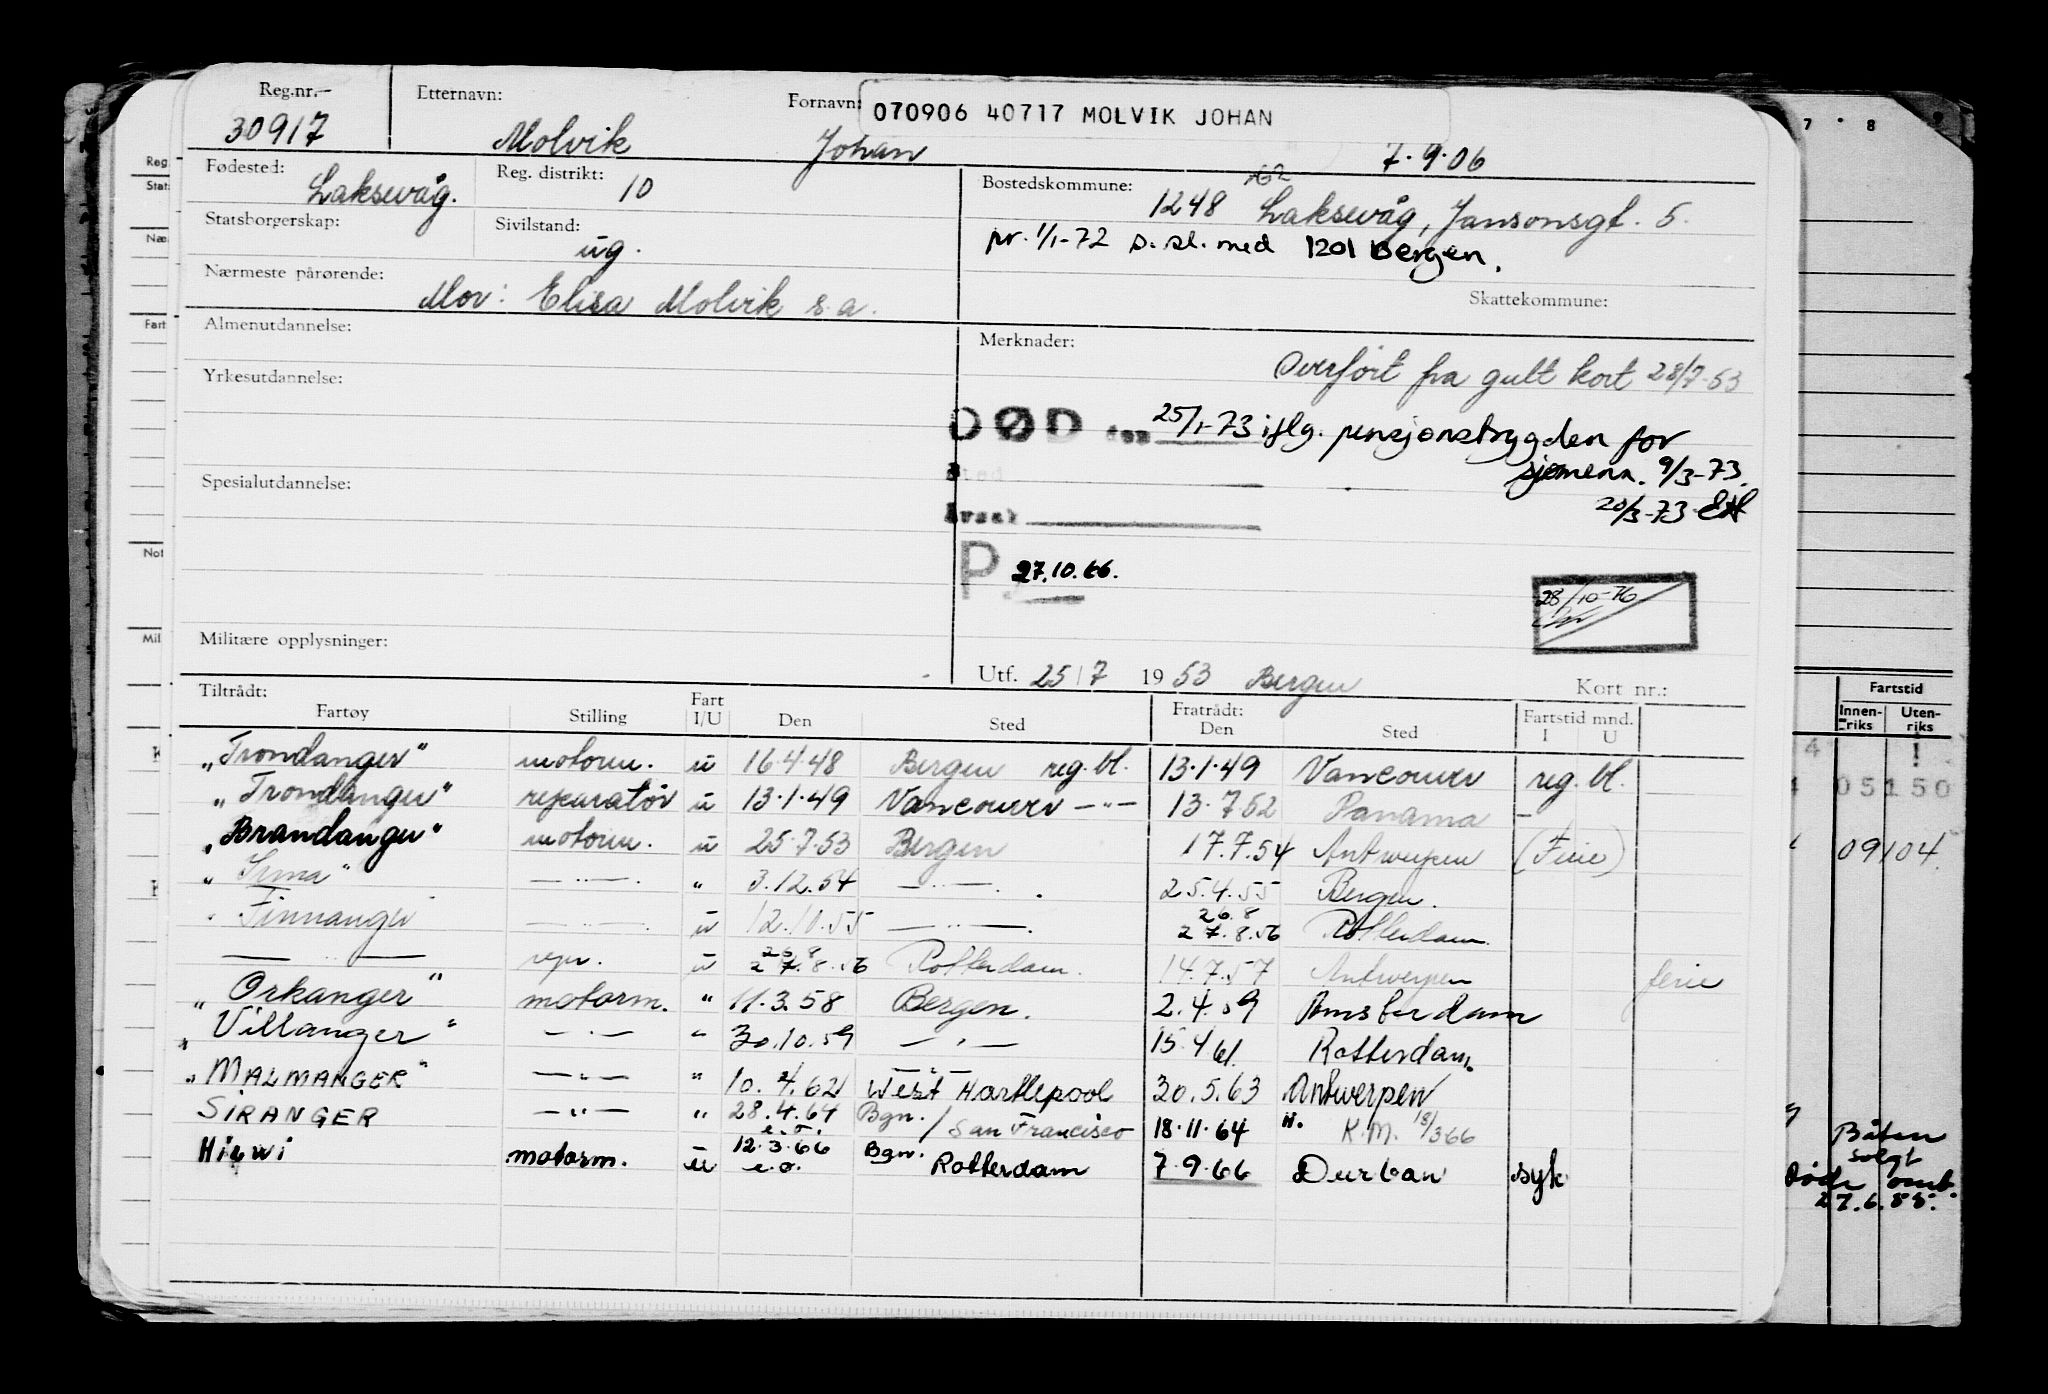 Reg.nr.— Etternavn: Fornavn: 070906 40717 MOLVIK JOHAN
30917 Molvik Johan 7.9.06
Fødested: Laksevåg. Reg. distrikt: 10 Bostedskommune: 1248 Laksevåg, Jansonsgt. 5.
Statsborgerskap: Sivilstand: ug. pr. 1/1-72 s.sl. med 1201 Bergen.
Nærmeste pårørende: Mor: Elisa Molvik s.a. Skattekommune:
Almenutdannelse: Merknader:
Overført fra gult kort 28/7-53
Yrkesutdannelse:
DØD den 25/1-73 iflg. pensjonstrygden for
sjømenn. 9/3-73.
Spesialutdannelse: Sted
20/3-73
Årsak
P 27.10.66.
28/10-76
Militære opplysninger:
Utf. 25/7 1953 Bergen Kort nr.:
Tiltrådt: Fratrådt: Fartstid mnd.
Fartøy Stilling Fart I/U Den Sted Den Sted I U
„Trondanger" motorm. u 16.4.48 Bergen reg.bl. 13.1.49 Vancouver reg.bl.
„Trondanger" reparatør u 13.1.49 Vancouver —"— 13.7.52 Panama —
„Brandanger" motorm. u 25.7.53 Bergen 17.7.54 Antwerpen (Ferie)
„Irma" —"—. " 3.12.54 —"—. 25.4.55 Bergen.
"Finnanger —"— u 12.10.55 —"—. 26.8 27.8.56 Rotterdam.
—"— repr. u 26.8 27.8.56 Rotterdam. 14.7.57 Antwerpen ferie
„Orkanger" motorm. " 11.3.58 Bergen. 2.4.59 Amsterdam
„Villanger" —"— " 30.10.59 —"— 15.4.61. Rotterdam.
„MALMANGER" —"— " 10.4.62 West Hartlepool 30.5.63 Antwerpen
SIRANGER —"— " 28.4.64 e.o. Bgn./San Francisco 18.11.64 H. K.M. 18/3 66
Hiewi motorm. u 12.3.66 e.o. Bgn. Rotterdam 7.9.66 Durban syk
Reg.
Fart
Mil
7 8 9
Fartstid
Innenriks Utenriks
05150
09104
Båten
solgt
27.6.85.